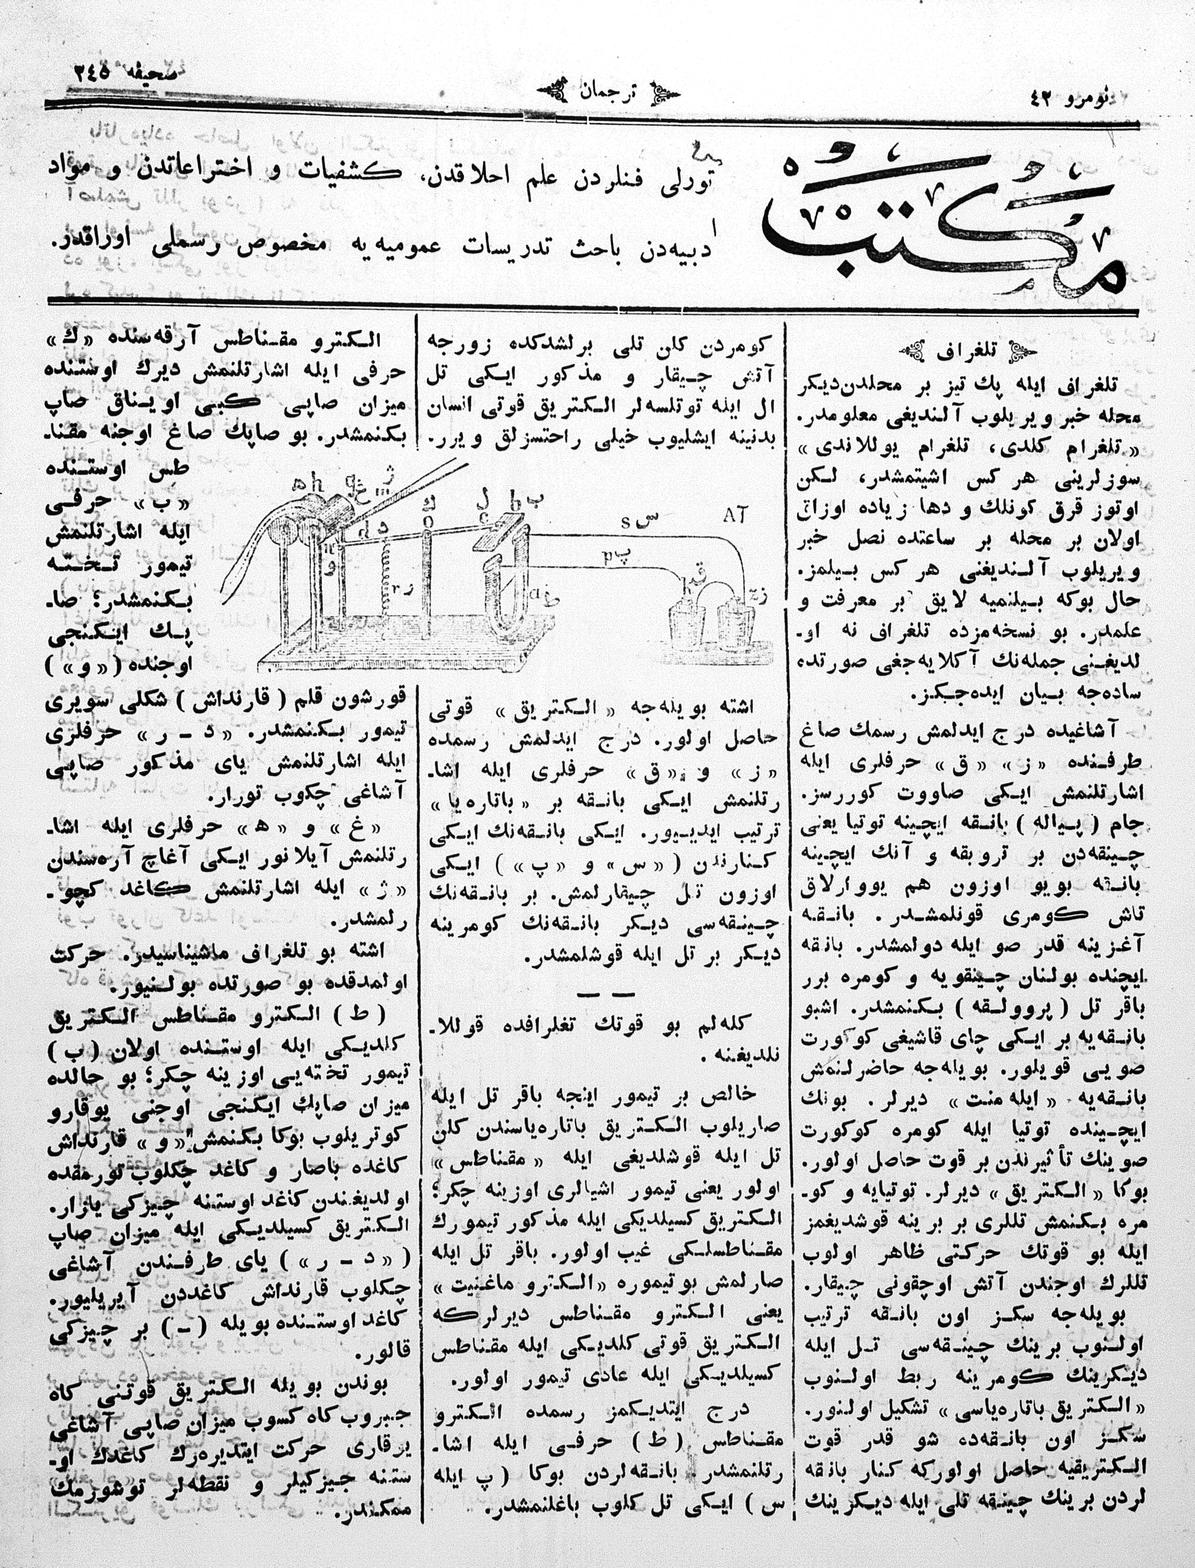 نومرو ٤٢
ترجمان
صحيفه ٣٤٥
مكتب
تورلى فنلردن علم احلاقدن، كشفيات و اختراعاتدن و مواد
ادبيه‌دن باحث تدريسات عموميه‌يه مخصوص رسملى اوراقدر.
تلغراف
تلغراف ايله پك تيز بر محلدن ديكر
محله خبر ويريلوب آلنديغى معلومدر.
«تلغرام كلدى، تلغرام يوللاندى»
سوزلرينى هر كس اشيتمشدر، لكن
اوتوز قرق كونلك و دها زياده اوزاق
اولان بر محله بر ساعتده نصل خبر
ويريلوب آلنديغنى هر كس بيلمز.
حال بوكه بيلنميه لايق بر معرفت و
علمدر. بو نسخه‌مزده تلغراف نه او-
لديغنى جمله‌نك آكلايه‌جغى صورتده
ساده‌جه بيان ايده‌جكز.
آشاغيده درج ايدلمش رسمك صاغ
طرفنده «ز» «ق» حرفلرى ايله
اشارتلنمش ايكى صاووت كوررسز.
جام (پياله) بانقه ايچينه توتيا يعنى
چينقه‌دن بر تروبقه و آنك ايچينه
بانقه بويو اوزون هم يووارلاق
تاش كومرى قونلمشدر. بانقه
آغزينه قدر صو ايله دولمشدر. بانقه
ايچنده بولنان چينقويه و كومره برر
باقر تل (پروولقه) بكنمشدر. اشبو
بانقه‌يه بر ايكى چاى قاشيغى كوكورت
صويى قويلور. بويله‌جه حاضرلنمش
بانقه‌يه «ايله منت» ديرلر. بونك
ايچينده توتيا ايله كومره كوكورت
صوينك تأثيرندن بر قوت حاصل اولور.
بوكا «الكتريق» ديرلر. توتيايه و كو-
مره بكنمش تللرى بر برينه قوشديغمز
ايله بو قوتك حركتى ظاهر اولوب
تللرك اوجندن آتش اوچقونى چيقار.
بويله‌جه سكز اون بانقه ترتيب
اولنوب برينك چينقه‌سى تل ايله
ديكرينك كومرينه ربط اولنوب
«الكتريق باتاره‌ياسى» تشكيل اولنور.
سكز اون بانقه‌ده شو قدر قوت
الكتريقيه حاصل اولوركه كنار بانقه
لردن برينك چينقه تلى ايله ديكرينك
كومردن كلن تلى برلشدكده زورجه
آتش چيقار و مذكور ايكى تل
ال ايله توتلسه‌لر الكتريق قوتى انسان
بدنينه ايشليوب خيلى راحتسزلق ويرر.
اشته بويله‌جه «الكتريق» قوتى
حاصل اولور. درج ايدلمش رسمده
«ز» و «ق» حرفلرى ايله اشا-
رتلنمش ايكى بانقه بر «باتاره‌يا»
ترتيب ايدييور. ايكى بانقه‌نك ايكى
كنارندن («س» و «پ») ايكى
اوزون تل چيقارلمش. بر بانقه‌نك
چينقه‌سى ديكر بانقه‌نك كومرينه
ديكر بر تل ايله قوشلمشدر.
كله‌لم بو قوتك تغلرافده قوللا-
نلديغنه.
خالص بر تيمور اينجه باقر تل ايله
صاريلوب الكتريق باتاره‌ياسندن كلن
تل ايله قوشلديغى ايله «مقناطس»
اولور يعنى تيمور اشيالرى اوزينه چكر؛
الكتريق كسيلديكى ايله مذكور تيمورك
مقناطسلكى غيب اولور. باقر تل ايله
صارلمش بو تيموره «الكترو ماغنيت»
يعنى الكترو مقناطس ديرلركه
الكتريق قوتى كلديكى ايله مقناطس
كسيلديكى ايله عادى تيمور اولور.
درج ايتديكمز رسمده الكترو
مقناطس (ط) حرفى ايله اشا-
رتلنمشدر. بانقه‌لردن بوكا (پ ايله
س) ايكى تل كلوب باغلنمشدر.
الكترو مقناطس آرقه‌سنده «ك»
حرفى ايله اشارتلنمش ديرك اوستنده
ميزان صاپى كبى اويناق صاپ
بكنمشدر. بو صاپك صاغ اوجنه مقنا-
طس اوستنده
«ب» حرفى
ايله اشارتلنمش
تيمور تخته
بكنمشدر؛ صا-
پك اينكنجى
اوجنده («و»)
قورشون قلم (قارنداش) شكلى سويرى
تيمور بكنمشدر. «د - ر» حرفلرى
ايله اشارتلنمش ياى مذكور صاپى
آشاغى چكوب تورار.
«غ» و «ه» حرفلرى ايله اشا-
رتلنمش آيلانور ايكى آغاچ آره‌سندن
«ژ» ايله اشارتلنمش كاغد كچو-
رلمشدر.
اشته بو تلغراف ماشيناسيدر. حركت
اولمدقده بو صورتده بولنيور.
(ط) الكترو مقناطس الكتريق
كلديكى ايله اوستنده اولان (ب)
تيمور تخته‌يى اوزينه چكر؛ بو حالده
ميزان صاپك ايكنجى اوجنى يوقارو
كوتريلوب بوكا بكنمش «و» قارنداش
كاغده باصار و كاغد چكلوب تورمقده
اولديغندن كاغد اوستنه چيزكى يازار.
الكتريق كسيلديكى ايله ميزان صاپ
(«د - ر») ياى طرفندن آشاغى
چكلوب قارنداش كاغددن آيريليور.
كاغد اوستنده بويله (-) بر چيزكى
قالور.
بوندن بويله الكتريق قوتنى كاه
جبروب كاه كسوب ميزان صاپى آشاغى
يرقارى حركت ايتديره‌رك كاغدك او-
ستنه جيزكيلر و نقطه‌لر توشورمك
ممكندر.